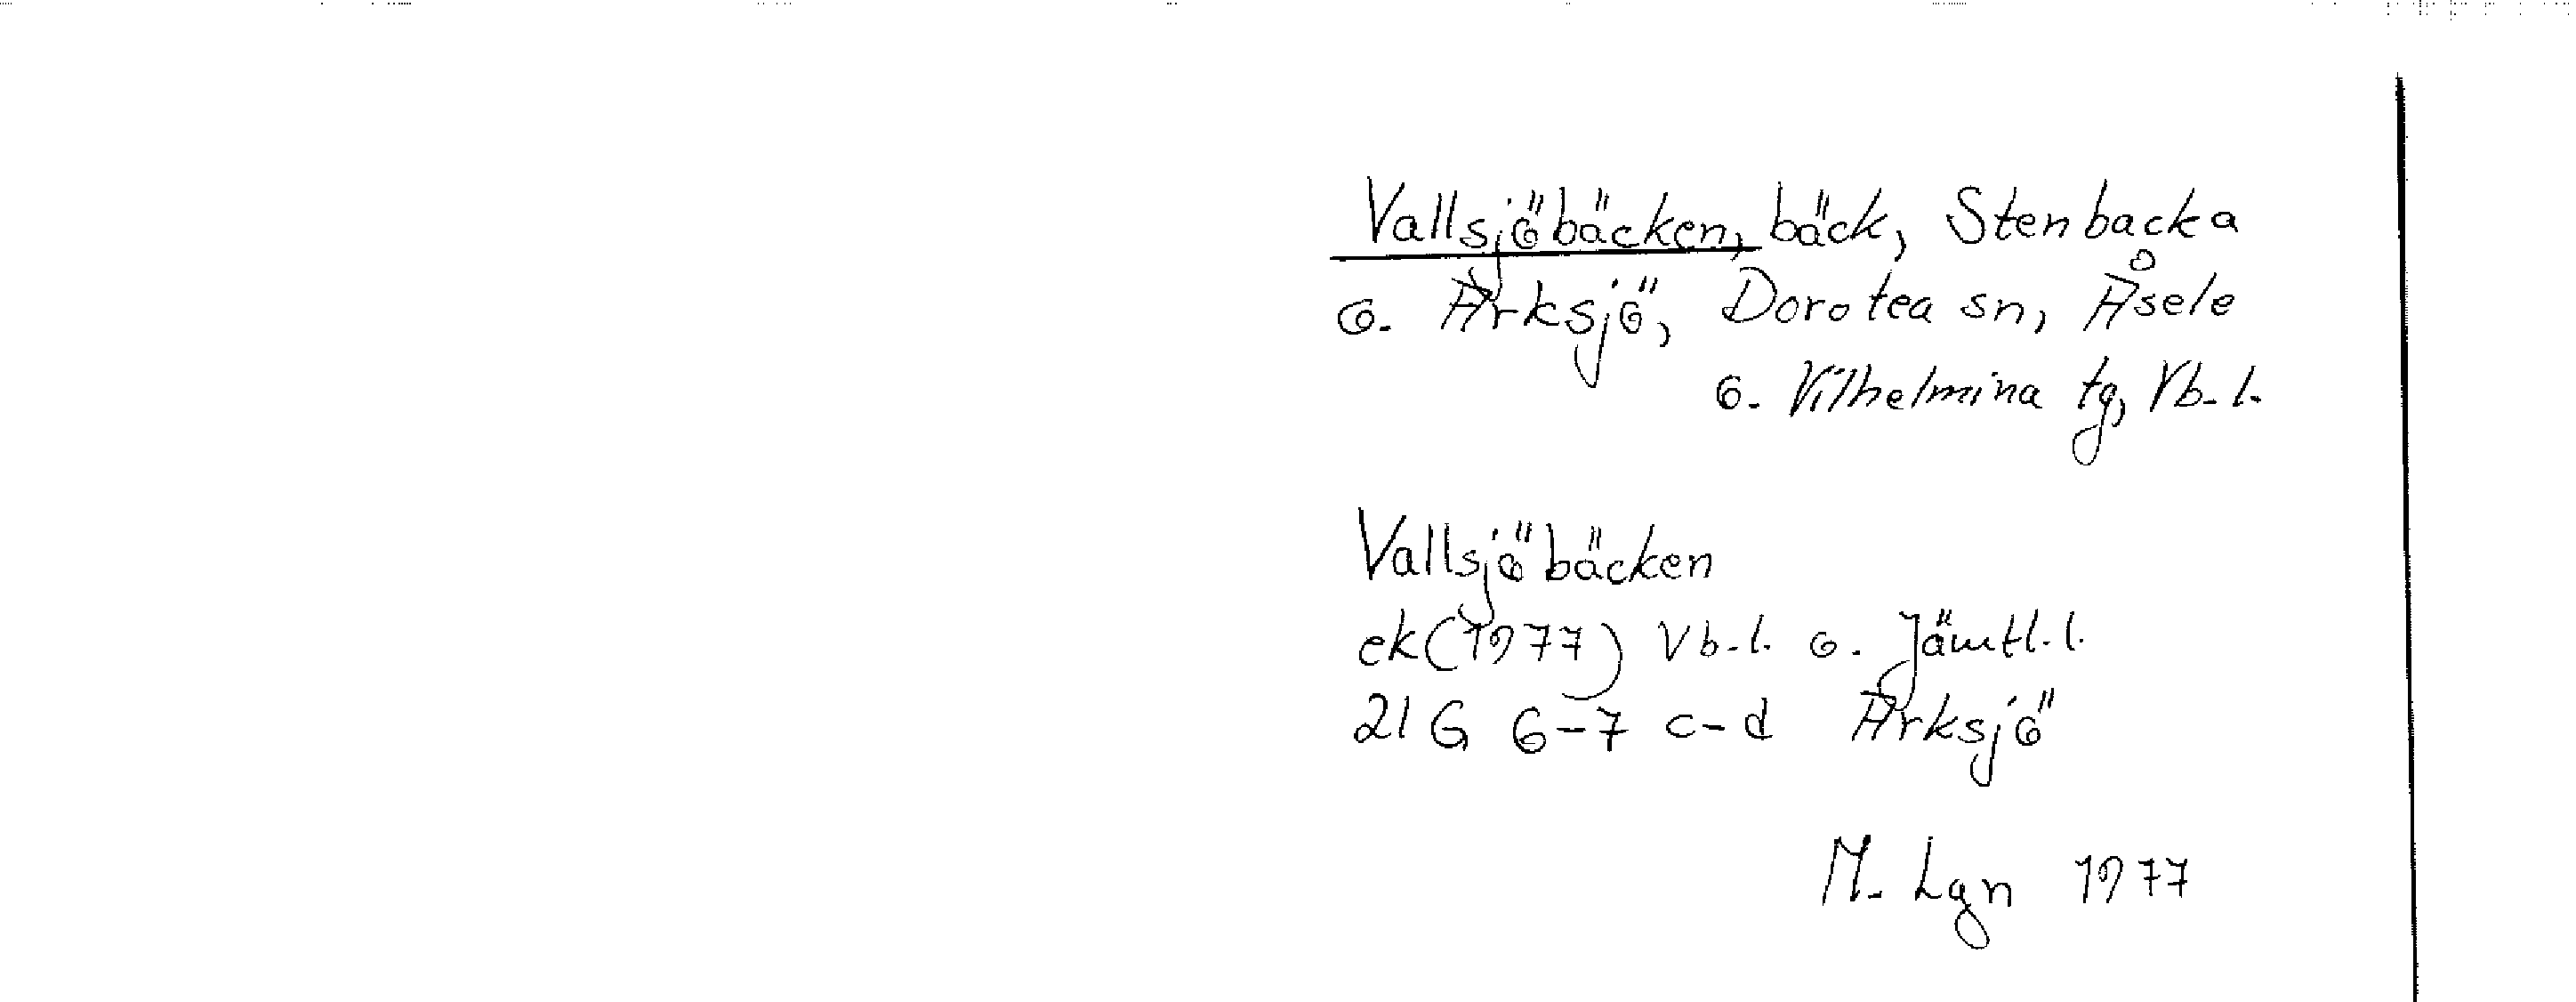 Vallsjöbäcken, bäck, Stenbacka
o. Arksjö, Dorotea sn, Åsele
o. Vilhelmina tg, Vb. l.
Vallsjöbäcken
ek (1977) Vb. l. o. Jämtl. l.
21 G 6-7 c-d Arksjö
M. Lgn 1977